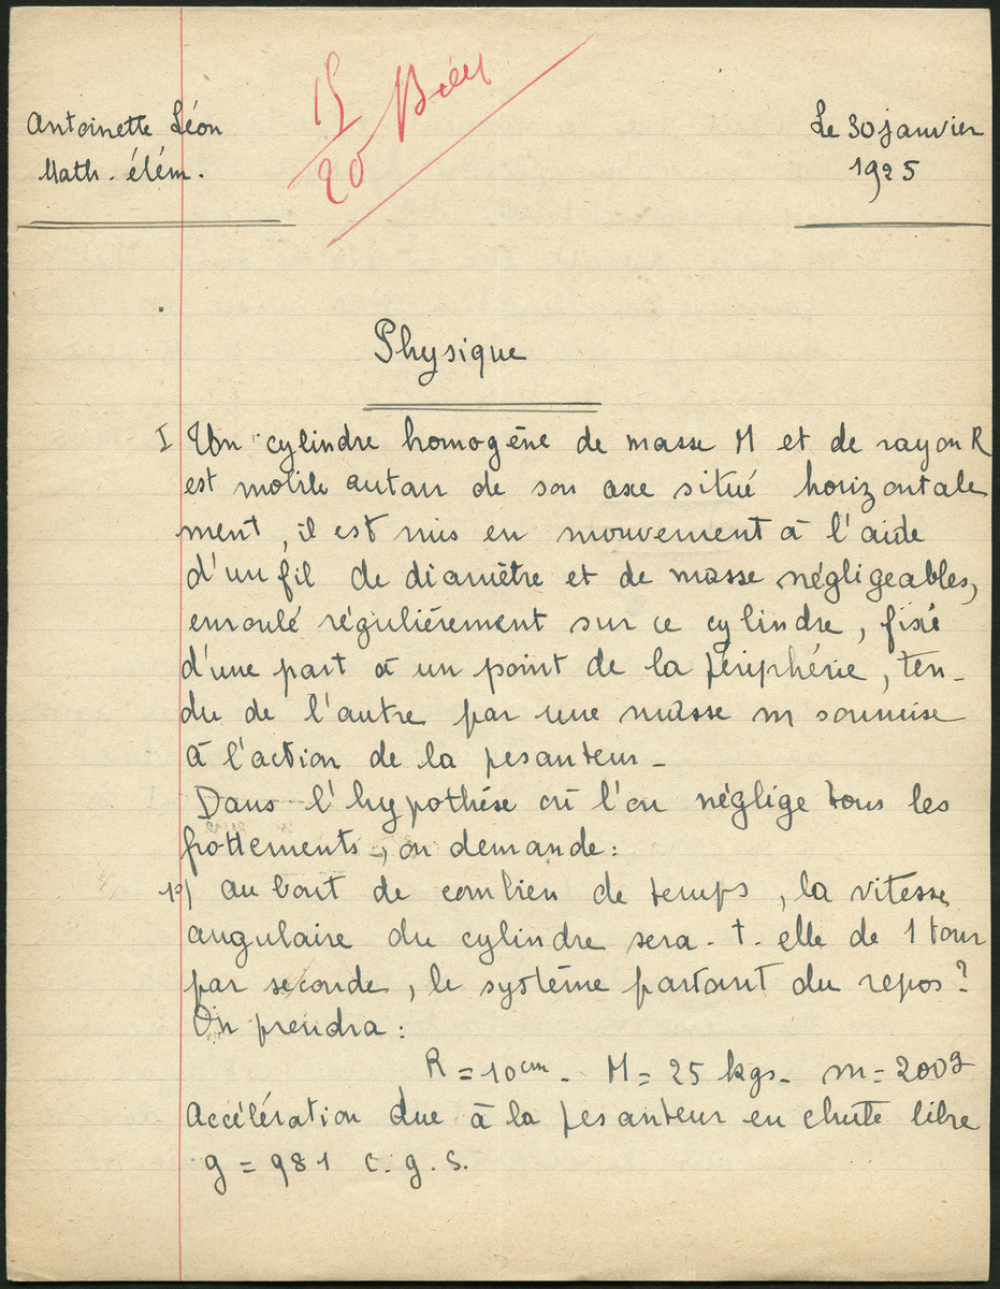 15
20
Bien
Antoinette Léon
Math. élém.
Le 30 janvier
1925
Physique
I Un cylindre homogène de masse M et de rayon R
est mobile autour de son axe situé horizontale
ment, il est mis en mouvement à l'aide
d'un fil de diamètre et de masse négligeables,
enroulé régulièrement sur ce cylindre, fixé
d'une part à un point de la périphérie, ten-
du de l'autre par une masse m soumise
à l'action de la pesanteur -
Dans l'hypothèse où l'on néglige tous les
frottements, on demande:
1°) au bout de combien de temps, la vitesse
angulaire du cylindre sera-t-elle de 1 tour
par seconde, le système partant du repos?
On prendra:
R = 10 cm - M = 25 kgs - m = 200 g
Accélération due à la pesanteur en chute libre
g = 981 c.g.s.